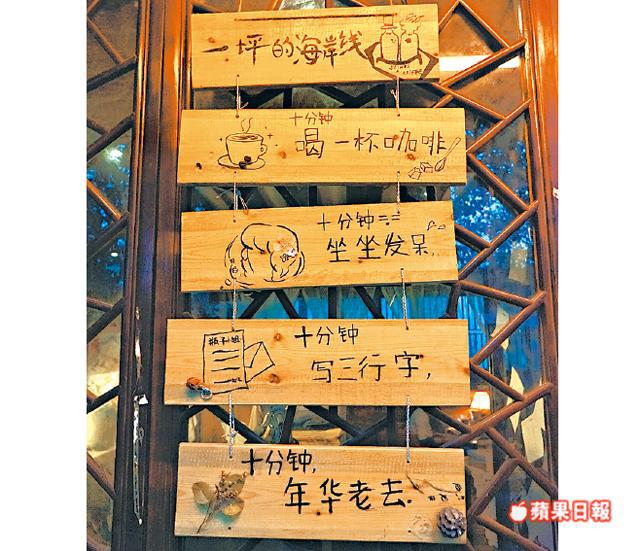 一坪的海岸线
十分钟
喝一杯咖啡
十分钟
坐坐发呆,
十分钟
写三行字,
十分钟,
年华老去.
蘋果日報